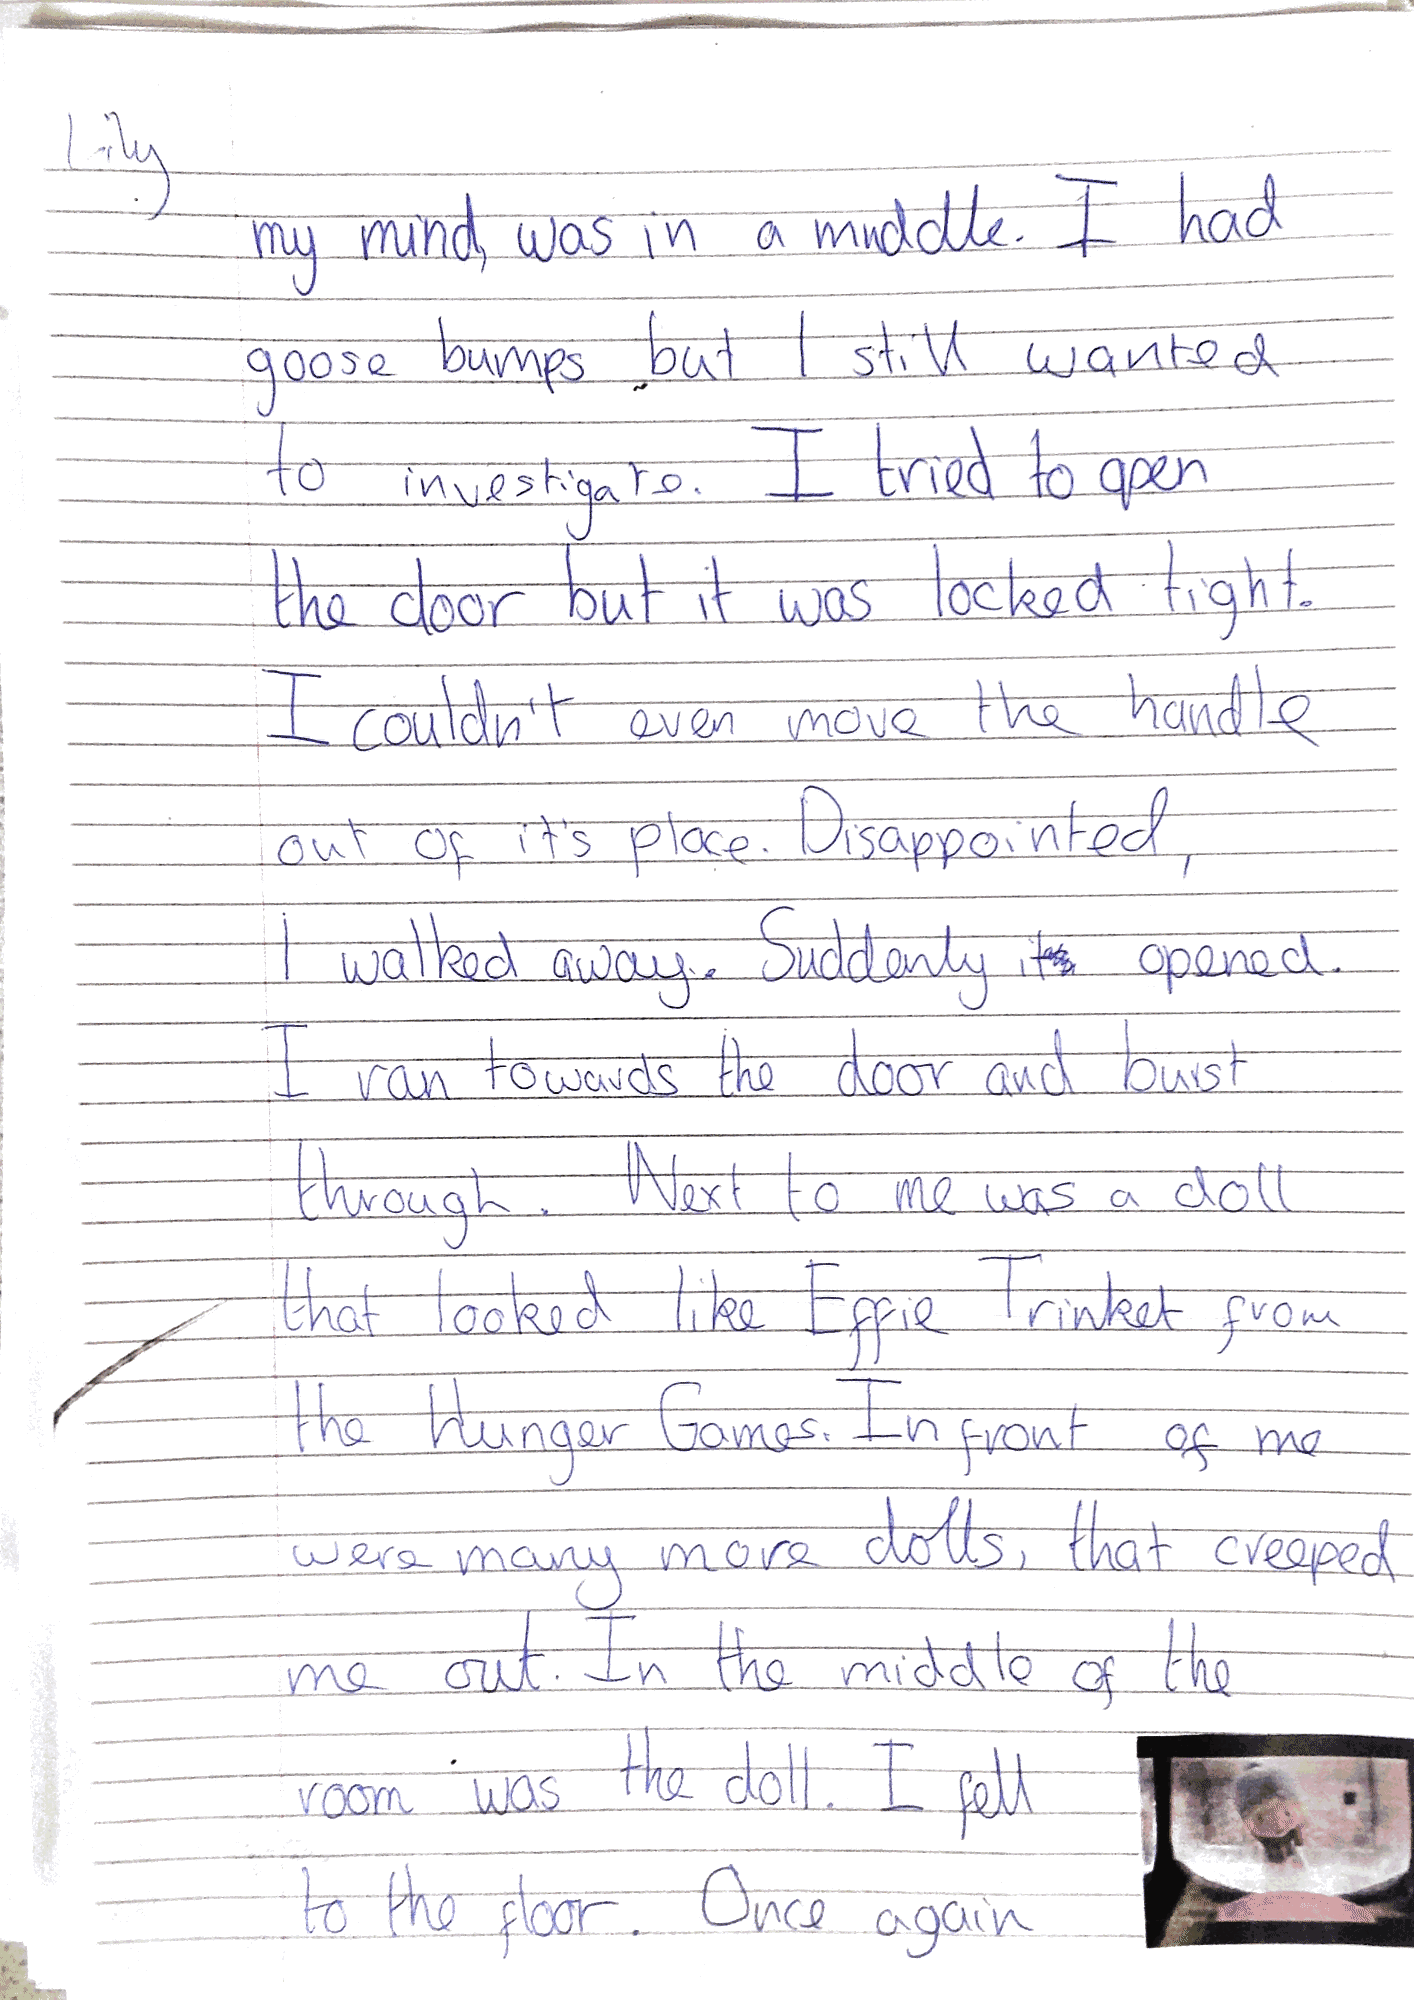 Lily
my mind, was in a muddle. I had
goose bumps but I still wanted
to investigate. I tried to open
the door but it was locked tight.
I couldn't even move the handle
out of it's place. Disappointed,
I walked away. Suddenly it opened.
I ran towards the door and burst
through. Next to me was a doll
that looked like Effie Trinket from
the Hunger Games. In front of me
were many more dolls, that creeped
me out. In the middle of the
room was the doll. I fell
to the floor. Once again